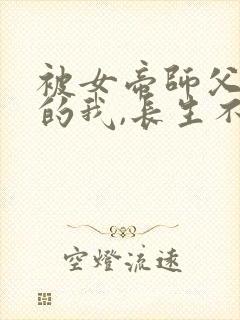 被女帝師父
的我,長生不
空燈流遠